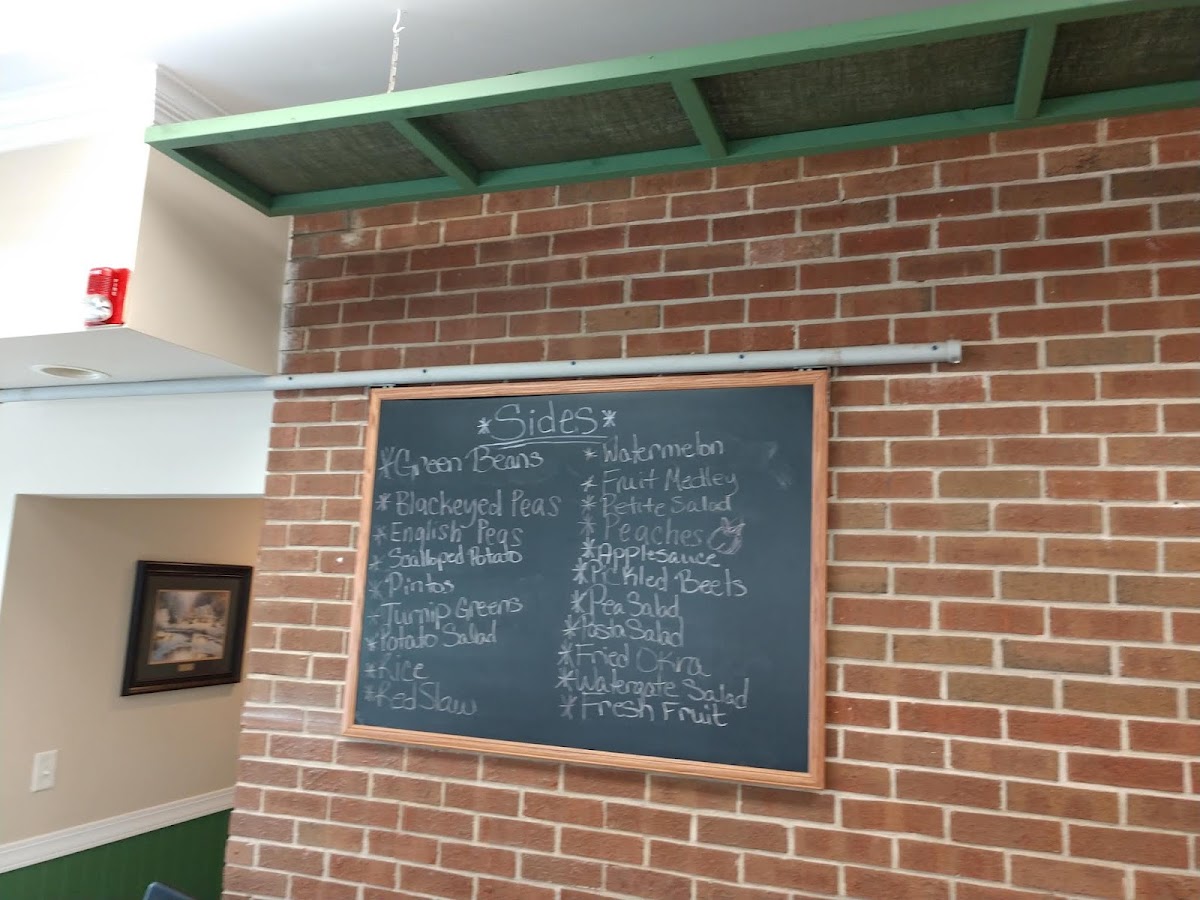 *Sides*
*Green Beans
*Blackeyed Peas
*English Peas
*Scalloped Potato
*Pintos
*Turnip Greens
*Potato Salad
*Rice
*Red Slaw
*Watermelon
*Fruit Medley
*Petite Salad
*Peaches
*Applesauce
*Pickled Beets
*Pea Salad
*Pasta Salad
*Fried Okra
*Watergate Salad
*Fresh Fruit